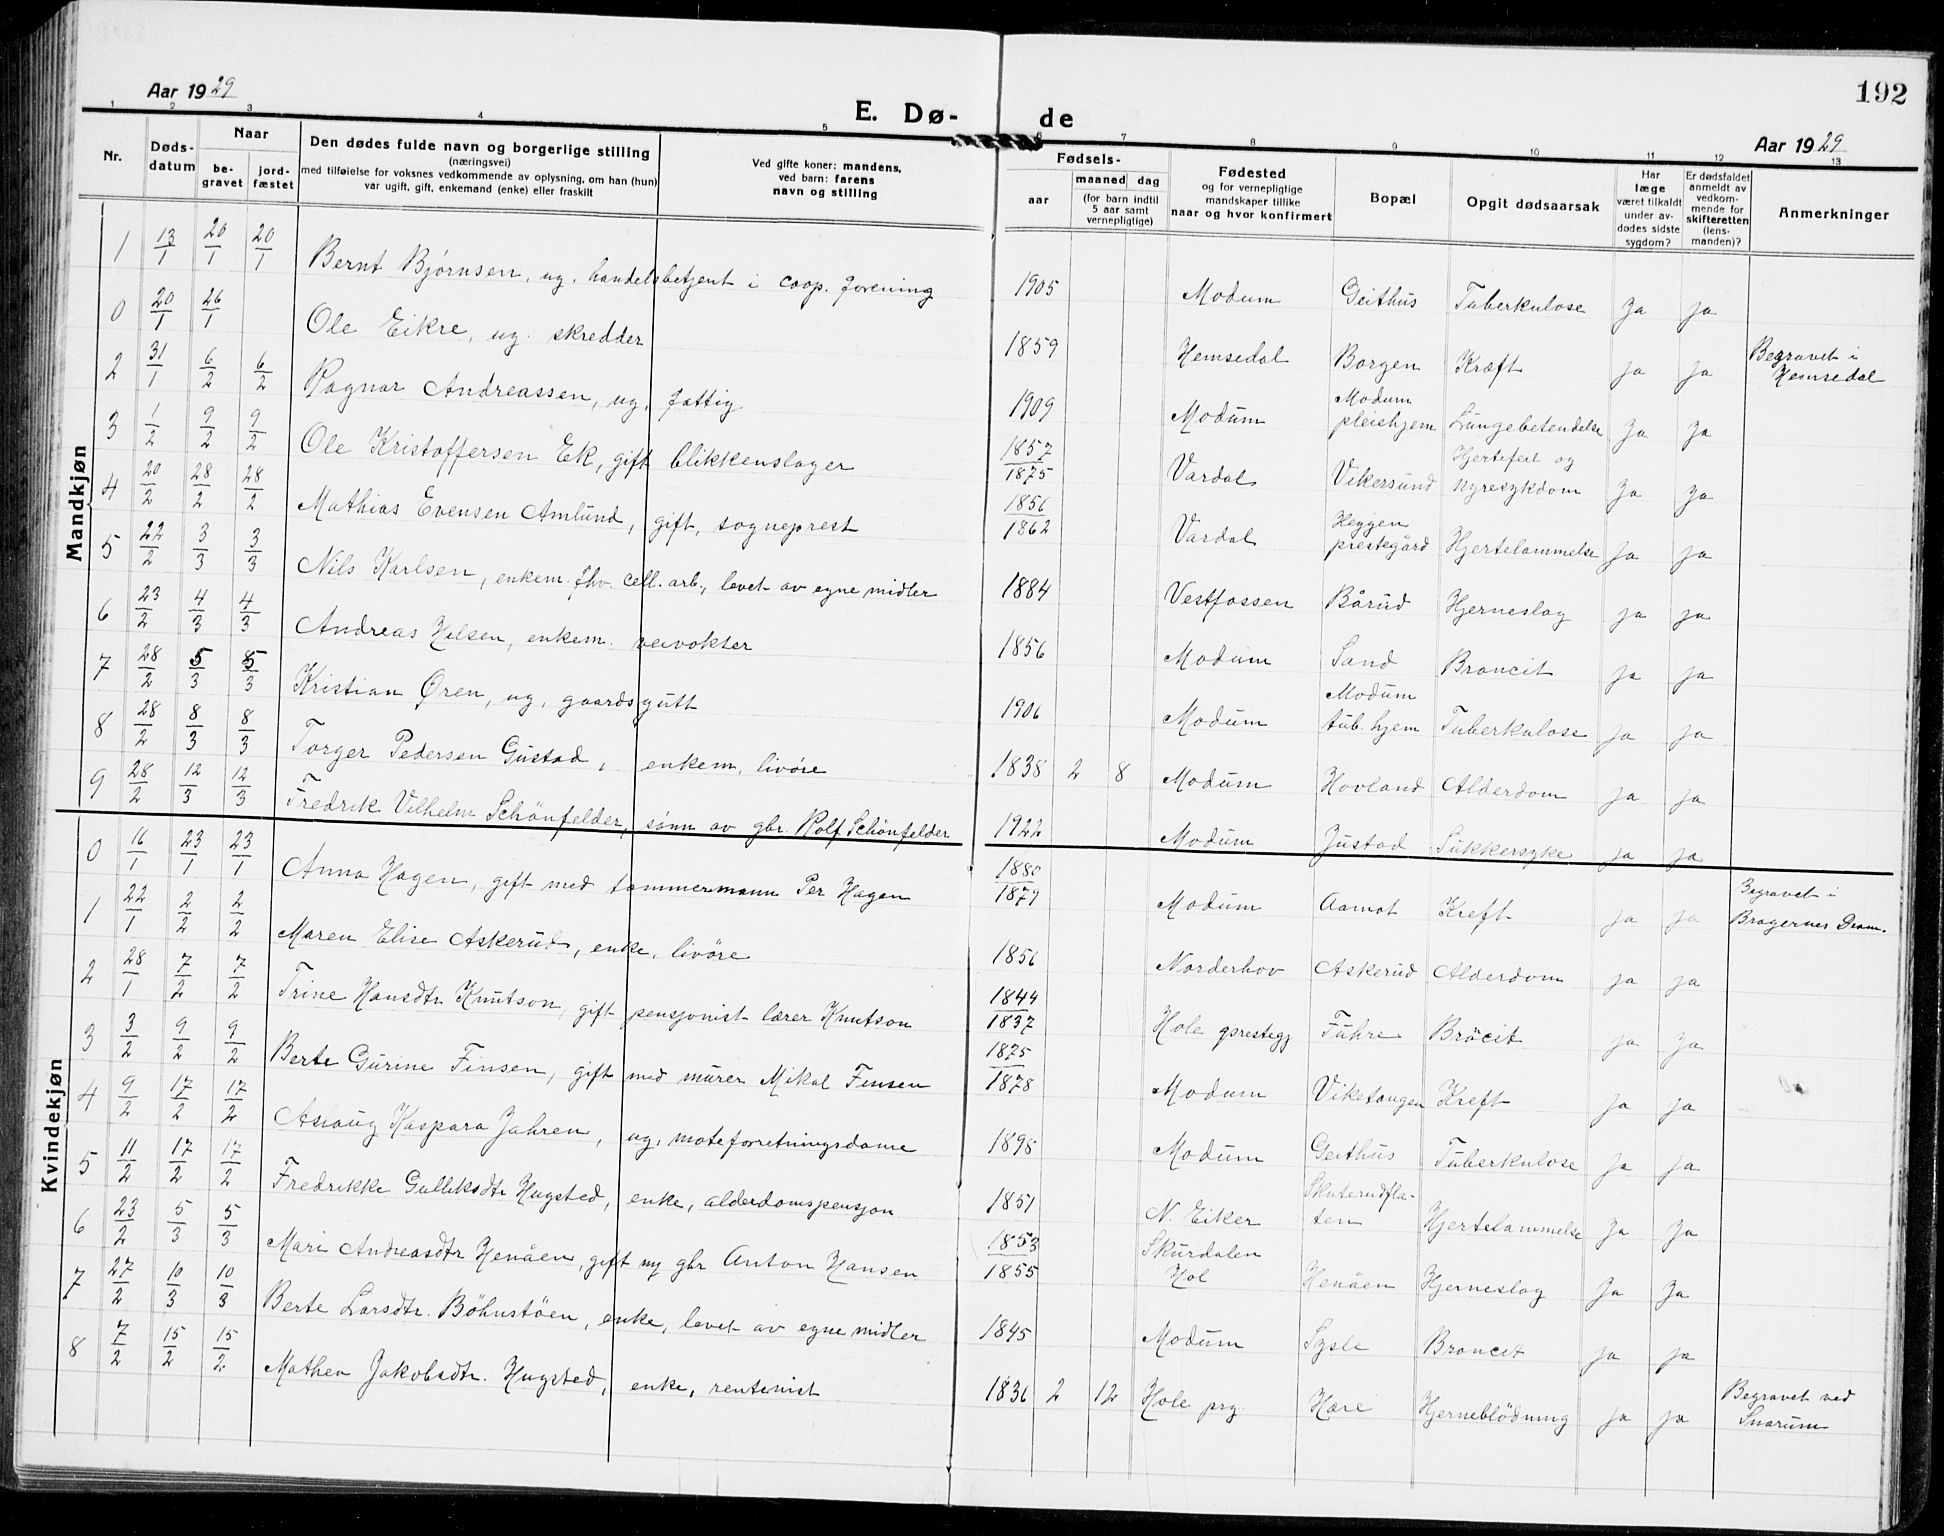 192
Aar 1929
E. Dø- de
Aar 1929
1 2 3 4 5 6 7 8 9 10 11 12 13
Nr.
Døds-datum
Naar
be-gravet
jord-fæstet
Den dødes fulde navn og borgerlige stilling
(næringsvei)
med tilføielse for voksnes vedkommende av oplysning, om han (hun)
var ugift, gift, enkemand (enke) eller fraskilt
Ved gifte koner: mandens,
ved barn: farens
navn og stilling
Fødsels-
aar
maaned dag
(for barn indtil
5 aar samt
vernepligtige)
Fødested
og for vernepligtige
mandskaper tillike
naar og hvor konfirmert
Bopæl
Opgit dødsaarsak
Har
læge
været tilkaldt
under av-
dødes sidste
sygdom?
Er dødsfaldet
anmeldt av
vedkom-
mende for
skifteretten
(lens-
manden)?
Anmerkninger
Mandkjøn
1 13/1 20/1 20/1 Bernt Bjørnsen, ug. handelsbetjent i coop. forening 1905 Modum Geithus Tuberkulose Ja ja
0 20/1 26/1 Ole Eikre, ug. skredder 1859 Hemsedal Borgen Kræft ja ja Begravet i Hemsedal
2 31/1 6/2 6/2 Ragnar Andreassen, ug, fattig 1909 Modum Modum pleiehjem Lungebetendelse Ja Ja
3 1/2 9/2 9/2 Ole Kristoffersen Ek, gift blikkenslager 1857/1875 Vardal Vikersund Hjertefeil og nyresykdom Ja Ja
4 20/2 28/2 28/2 Mathias Evensen Amlund, gift, sogneprest 1856/1862 Vardal Heggen prestegård Hjertelammelse Ja ja
5 22/2 3/3 3/3 Nils Karlsen, enkem. fhv. cell. arb., levet av egne midler 1884 Vestfossen Bårud Hjerneslag ja ja
6 23/2 4/3 4/3 Andreas Nilsen, enkem. veivokter 1856 Modum Sand Broncit ja ja
7 28/2 5/3 5/3 Kristian Øren, ug, gaardsgutt 1906 Modum Modum tub. hjem Tuberkulose ja ja
8 28/2 8/3 8/3 Torger Pedersen Gustad, enkem, livöre 1838 2 8 Modum Hovland Alderdom ja ja
9 28/2 12/3 12/3 Fredrik Vilhelm Schönfelder, sönn av gbr. Rolf Schönfelder 1922 Modum Justad Sukkersyke ja ja
Kvindekjøn
0 16/1 23/1 23/1 Anna Hagen, gift med tømmermann Per Hagen 1880/1879 Modum Aamot Kreft ja ja Begravet i Bragernes Dram.
1 22/1 2/2 2/2 Maren Elise Askerud, enke, livöre 1856 Norderhov Askerud Alderdom ja ja
2 28/1 7/2 7/2 Trine Hansdtr Knutson, gift pensjonist lærer Knutson 1844/1837 Hole prestegj Fuhre Bröcit ja Ja
3 3/2 9/2 9/2 Berte Gurine Finsen, gift med murer Mikal Finsen 1875/1878 Modum Viketangen Kreft ja ja
4 9/2 17/2 17/2 Aslaug Kaspara Jahren, ug, moteforretningsdame 1898 Modum Geithus Tuberkulose ja ja
5 11/2 17/2 17/2 Fredrikke Gulliksdtr Hugsted, enke, alderdomspensjon 1851 N. Eiker Skuterudfla-ten Hjertelammelse Ja Ja
6 23/2 5/3 5/3 Mari Andreasdtr Henåen, gift m/ gbr Anton Hansen 1853/1855 Skurdalen Hol Henåen Hjerneslag Ja Ja
7 27/2 10/3 10/3 Berte Larsdtr. Böhnstöen, enke, levet av egne midler 1845 Modum Sysle Broncit ja ja
8 7/2 15/2 15/2 Mathea Jakobsdtr. Hugsted, enke, rentenist 1836 2 12 Hole prg. Hære Hjerneblödning ja ja Begravet ved Snarum